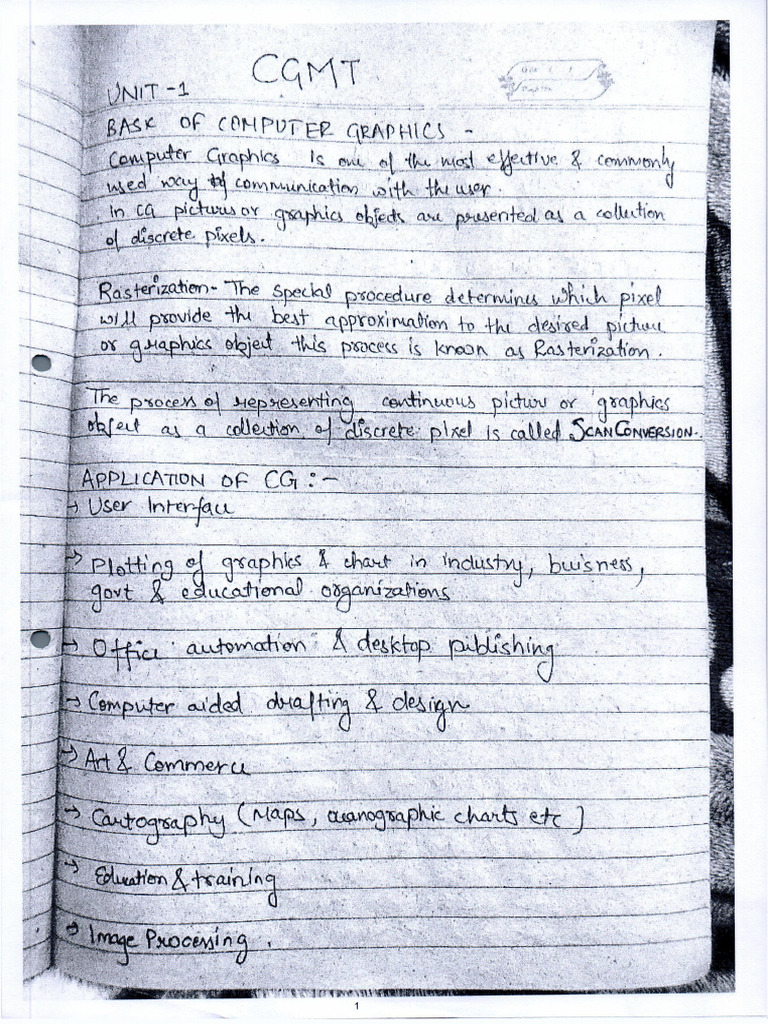 CGMT
UNIT -1
BASIC OF COMPUTER GRAPHICS -
Computer Graphics is one of the most effective & commonly
used way of communication with the user.
In CG pictures or graphics objects are presented as a collection
of discrete pixels.
Rasterization - The special procedure determines which pixel
will provide the best approximation to the desired picture
or graphics object this process is known as Rasterization.
The process of representing continuous picture or graphics
object as a collection of discrete pixel is called SCAN CONVERSION.
APPLICATION OF CG :-
→ User Interface
→ Plotting of graphics & chart in industry, buisness,
govt & educational organizations
→ Office automation & desktop publishing
→ Computer aided drafting & design
→ Art & Commerce
→ Cartography (Maps, oceanographic charts etc)
→ Education & training
→ Image Processing.
1